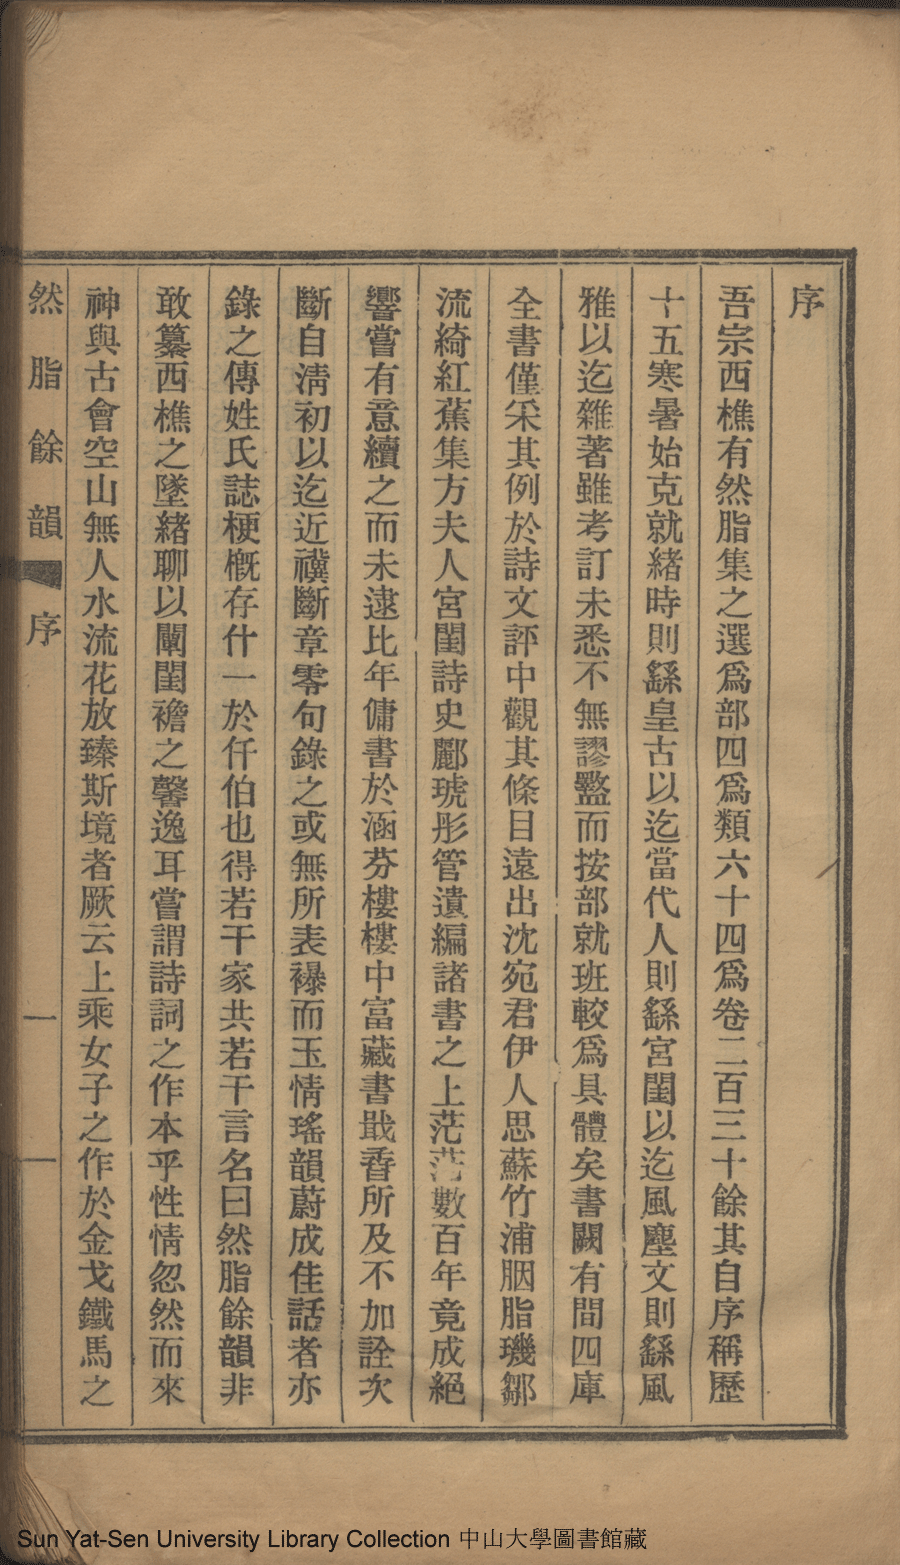 序
吾宗西樵有然脂集之選爲部四爲類六十四爲卷二百三十餘其自序稱歷
十五寒暑始克就緒時則繇皇古以迄當代人則繇宮閨以迄風塵文則繇風
雅以迄雜著雖考訂未悉不無謬盭而按部就班較爲具體矣書闕有間四庫
全書僅采其例於詩文評中觀其條目遠出沈宛君伊人思蘇竹浦胭脂璣鄒
流綺紅蕉集方夫人宮閨詩史酈琥彤管遺編諸書之上茫茫數百年竟成絕
響嘗有意續之而未逮比年傭書於涵芬樓樓中富藏書戢孴所及不加詮次
斷自淸初以迄近禩斷章零句錄之或無所表襮而玉情瑤韻蔚成佳話者亦
錄之傳姓氏誌梗概存什一於仟伯也得若干家共若干言名曰然脂餘韻非
敢纂西樵之墜緒聊以闡閨襜之馨逸耳嘗謂詩詞之作本乎性情忽然而來
神與古會空山無人水流花放臻斯境者厥云上乘女子之作於金戈鐵馬之
然脂餘韻 序 一
Sun Yat-Sen University Library Collection 中山大學圖書館藏